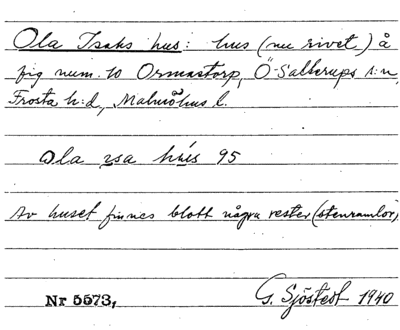 Ola Isaks hus: hus (nu rivet) å
fig num. 10 Ormastorp, Ö-Sallerups s:n,
Frosta h:d, Malmöhus l.
ola isa hus 95
Av huset finnes blott några rester (stenramlor)
Nr 5573, G. Sjöstedt 1940